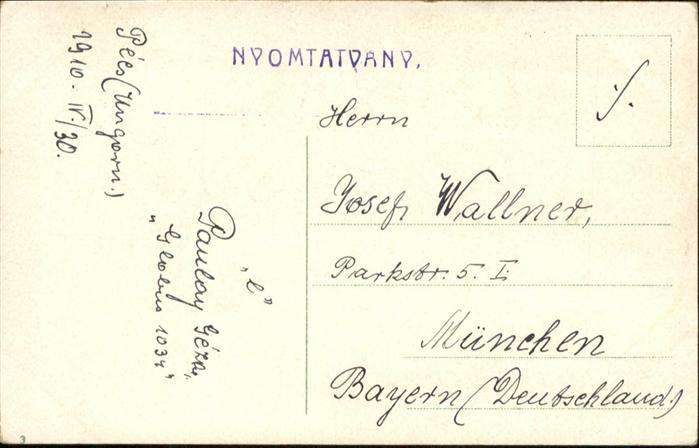 NYOMTATVANY.
Pécs (Ungarn.)
1910. IV./30.
"L"
Paulay Géza,
"Globus 1034"
Herrn
Josef Wallner,
Parkstr. 5. I.
München
Bayern (Deutschland)